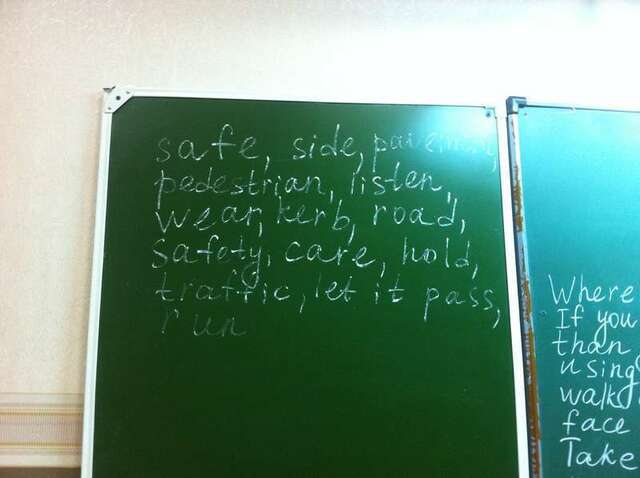 safe, side, pavement,
pedestrian, listen,
wear, kerb, road,
safety, care, hold,
traffic, let it pass,
run
Where
If you
than
using
walks
face
Take